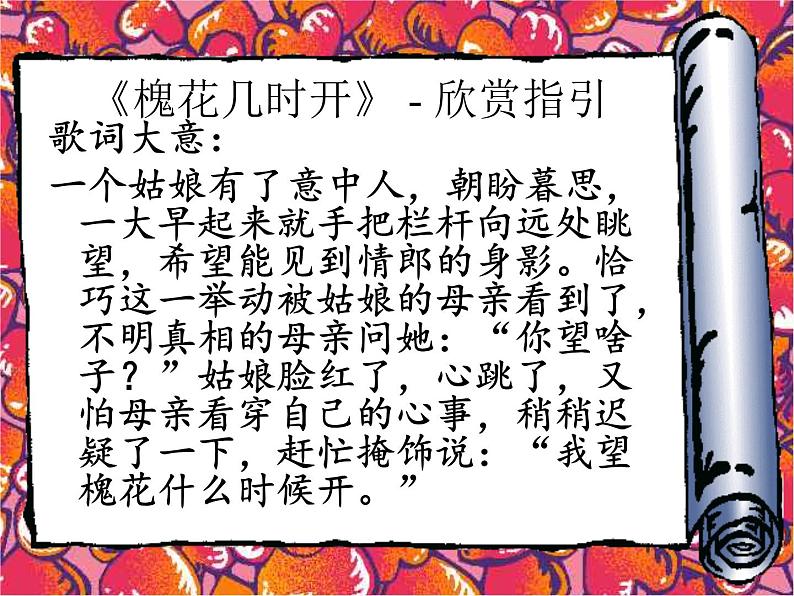 《槐花几时开》 - 欣赏指引
歌词大意：
一个姑娘有了意中人，朝盼暮思，
一大早起来就手把栏杆向远处眺
望，希望能见到情郎的身影。恰
巧这一举动被姑娘的母亲看到了，
不明真相的母亲问她：“你望啥
子？”姑娘脸红了，心跳了，又
怕母亲看穿自己的心事，稍稍迟
疑了一下，赶忙掩饰说：“我望
槐花什么时候开。”